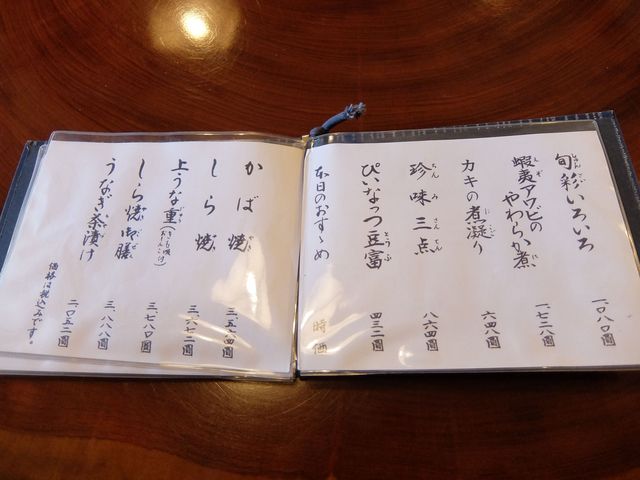 旬彩いろいろ
一、〇八〇圓
蝦夷アワビの
やわらか煮
一、七二八圓
カキの煮凝り
六四八圓
珍味三点
八六四圓
ぴいなっつ豆富
四三二圓
本日のおすゝめ
時価
かば焼
三、五六四圓
しら焼
三、六七二圓
上うな重
三、七八〇圓
しら焼御膳
三、八八八圓
うなぎ茶漬け
二、〇五二圓
価格は税込みです。